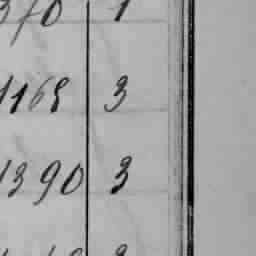 370 1
1168 3
1390 3